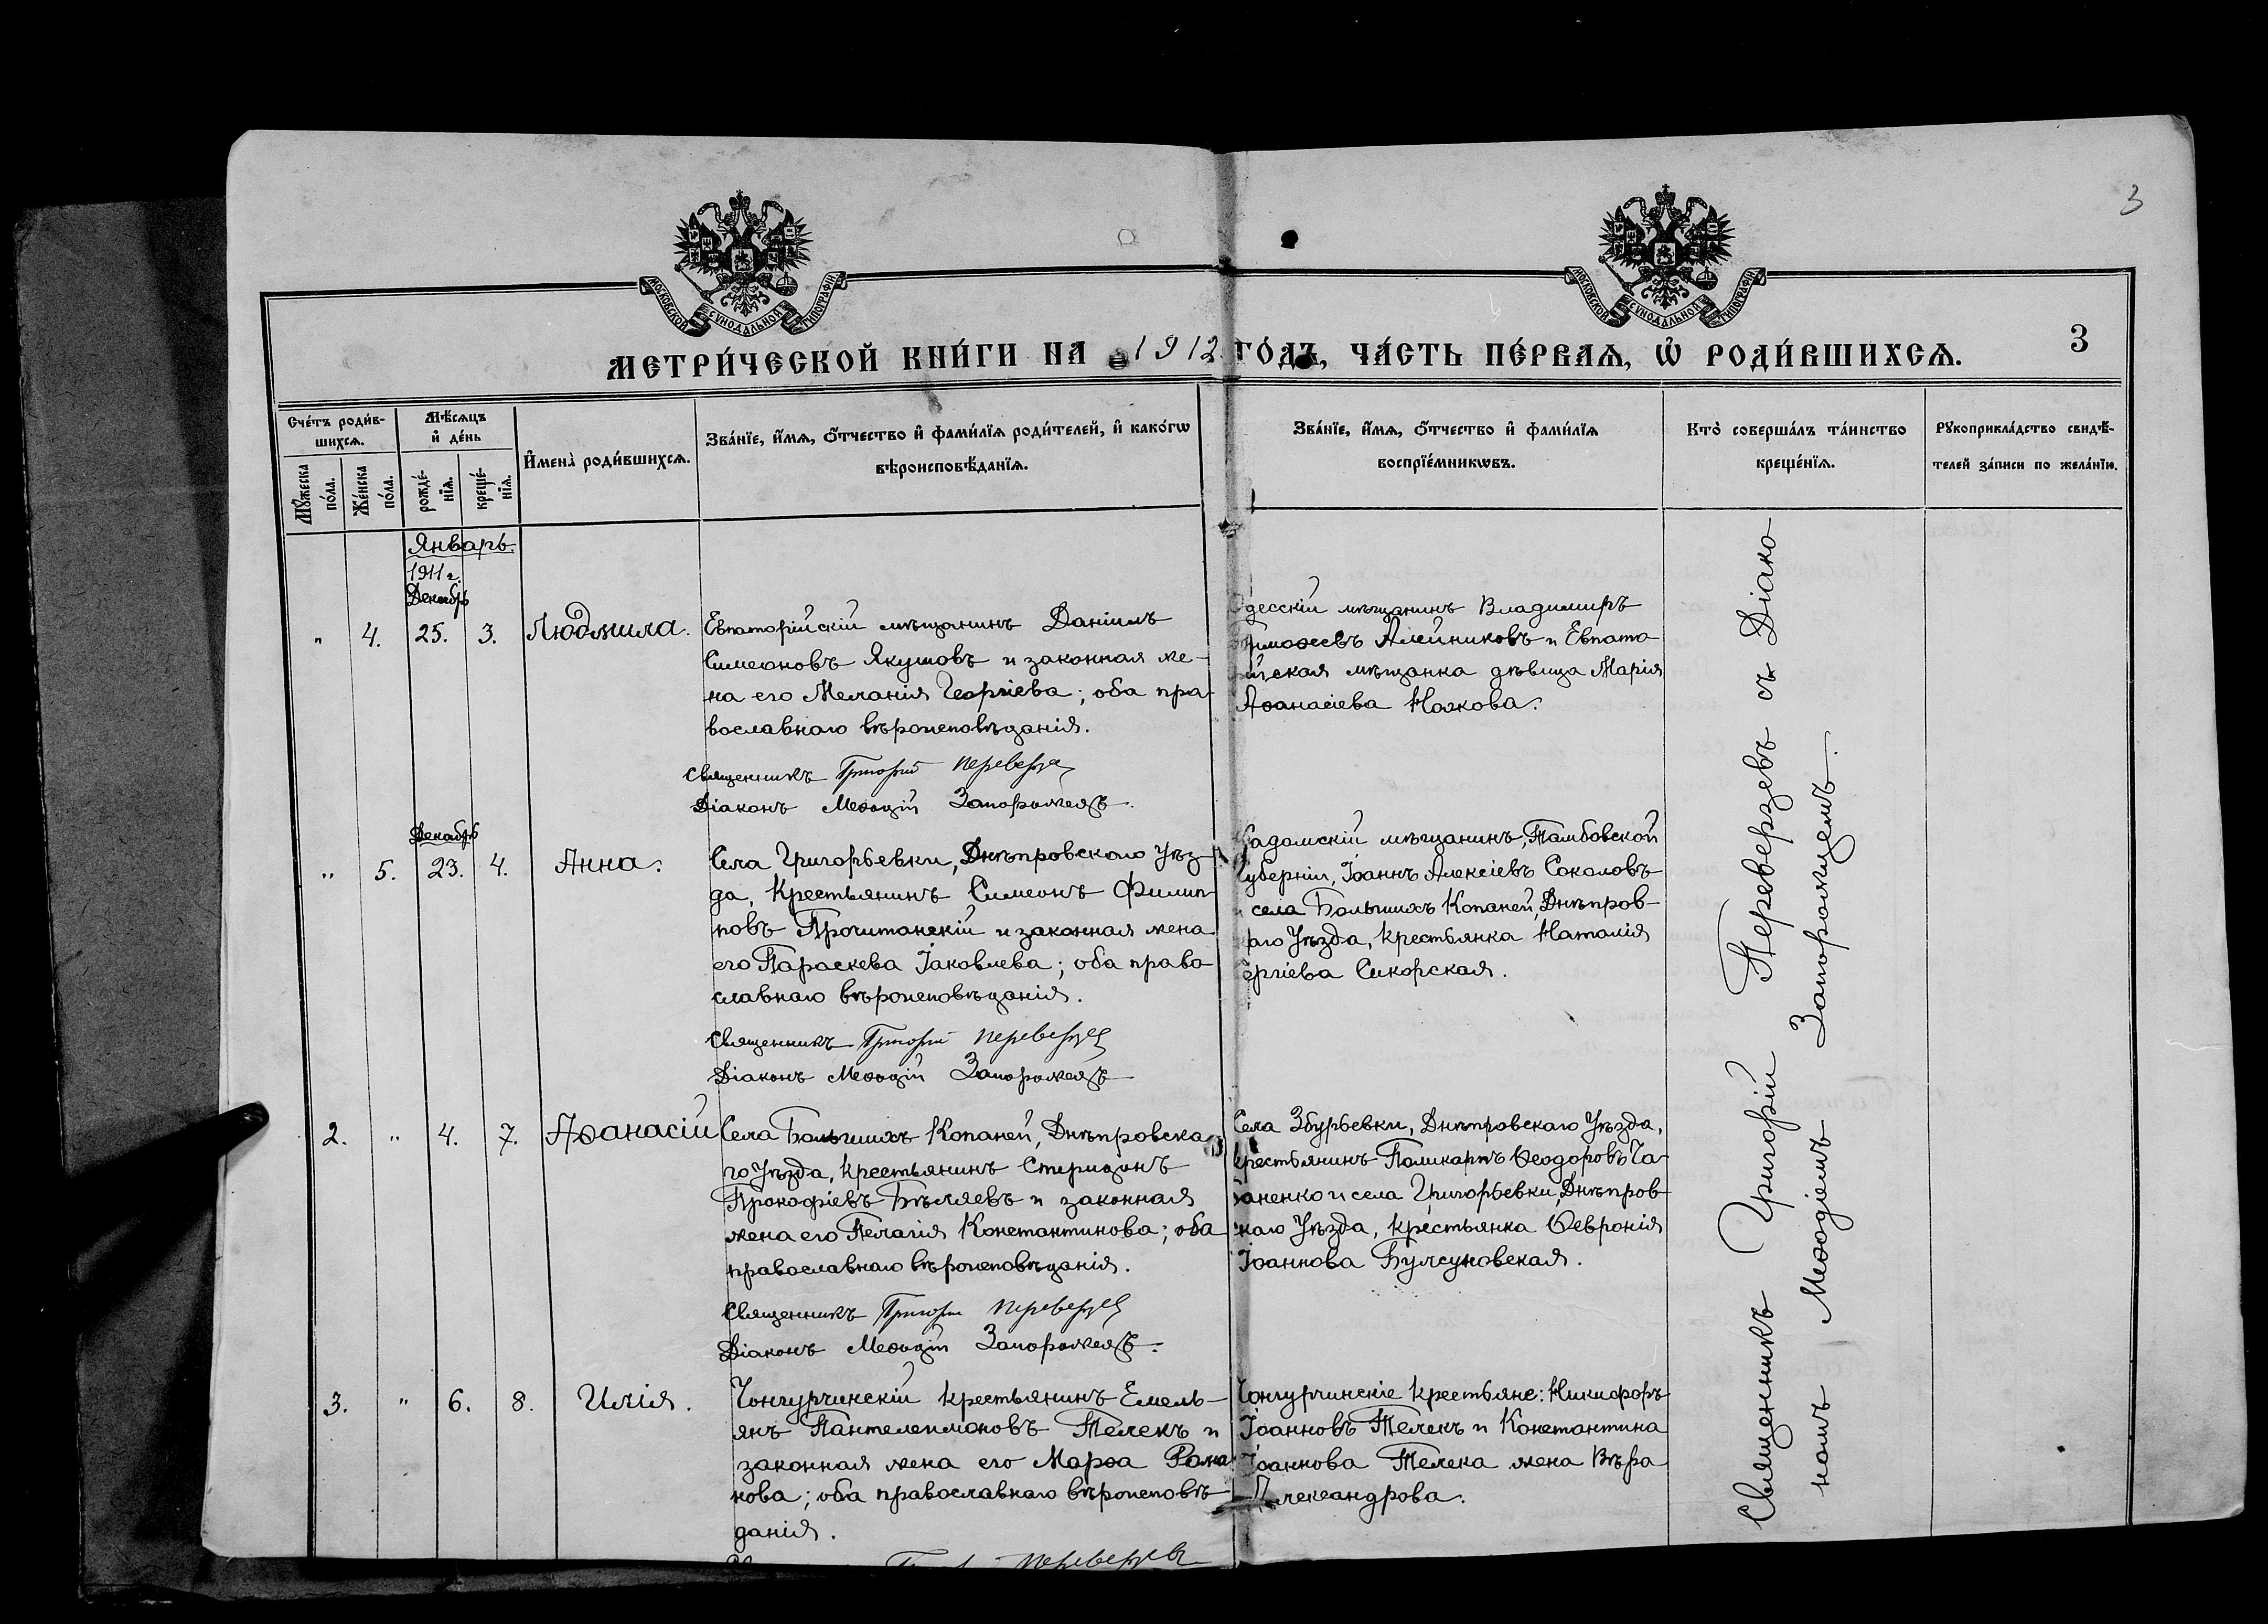 3
МОСКОВСКОЙ СУНОДАЛЬНОЙ ТИПОГРАФІИ
МОСКОВСКОЙ СУНОДАЛЬНОЙ ТИПОГРАФІИ
МЕТРИ́ЧЕСКОЙ КНИ́ГИ НА 1912 ГО́ДЪ, ЧА́СТЬ ПЕ́РВАѦ, Ѡ҆ РОДИ́ВШИХСѦ.
3
Сче́тъ роди́в-
шихсѧ.
Мꙋ́жеска
по́ла.
Же́нска
по́ла.
Мѣ́сѧцъ
и҆ де́нь
рожде́-
нїѧ.
креще́-
нїѧ.
И҆мена̀ роди́вшихсѧ.
Зва́нїе, и҆́мѧ, ѻ҆́тчество и҆ фами́лїѧ роди́телей, и҆ како́гѡ
вѣроисповѣ́данїѧ.
Зва́нїе, и҆́мѧ, ѻ҆́тчество и҆ фами́лїѧ
воспрїе́мникѡвъ.
Кто̀ соверша́лъ та́инство
креще́нїѧ.
Рꙋкоприкла́дство свидѣ́-
телей за́писи по жела́нїю.
Январь.
1911 г.
Декабрь
" 4. 25. 3. Людмила.
Евпаторійскій мѣщанинъ Даніилъ
Симеоновъ Якушовъ и законная же-
на его Меланія Георгіева; оба пра-
вославнаго вѣроисповѣданія.
Священникъ Григорій Переверзе
Діаконъ Меѳодій Запорожецъ.
десскій мѣщанинъ Владимиръ
имоѳеевъ Алейниковъ и Евпато-
йская мѣщанка дѣвица Марія
Аѳанасіева
Декабрь
" 5. 23. 4. Анна.
Села Григорьевки, Днѣпровскаго Уѣз-
да, крестьянинъ Симеонъ Филип-
повъ Прочитанскій и законная жена
его Параскева Іаковлева; оба право-
славнаго вѣроисповѣданія.
Священникъ Григорій Переверзев
Діаконъ Меѳодій Запорожецъ
адомскій мѣщанинъ, Тамбовской
Губерніи, Іоаннъ Алексіевъ Соколовъ
и села Большихъ Копаней, Днѣпров-
каго Уѣзда, крестьянка Наталія
ергіева Сикорская.
2. " 4. 7. Аѳанасій
Села Большихъ Копаней, Днѣпровска-
го Уѣзда, крестьянинъ Спиридонъ
Прокофіевъ Бѣляевъ и законная
жена его Пелагія Константинова; оба
православнаго вѣроисповѣданія.
Священникъ Григорій Переверзев
Діаконъ Меѳодій Запорожецъ.
Села Збурьевки, Днѣпровскаго Уѣзда,
крестьянинъ Поликарпъ Ѳеодоровъ Га-
аненко и села Григорьевки, Днѣпров-
скаго Уѣзда, крестьянка Ѳевронія
Іоаннова
3. " 6. 8. Илія.
Чонгурчинскій крестьянинъ Емель-
янъ Пантелеимоновъ Телекъ и
законная жена его Марѳа Рома-
нова; оба православнаго вѣроисповѣ-
данія.
Переверзев
Чонгурчинскіе крестьяне: Никифоръ
Іоанновъ Телекъ и Константина
Іоаннова Телека жена Вѣра
Александрова.
Священникъ Григорій Переверзевъ съ Діако-
номъ Меѳодіемъ Запорожцемъ.